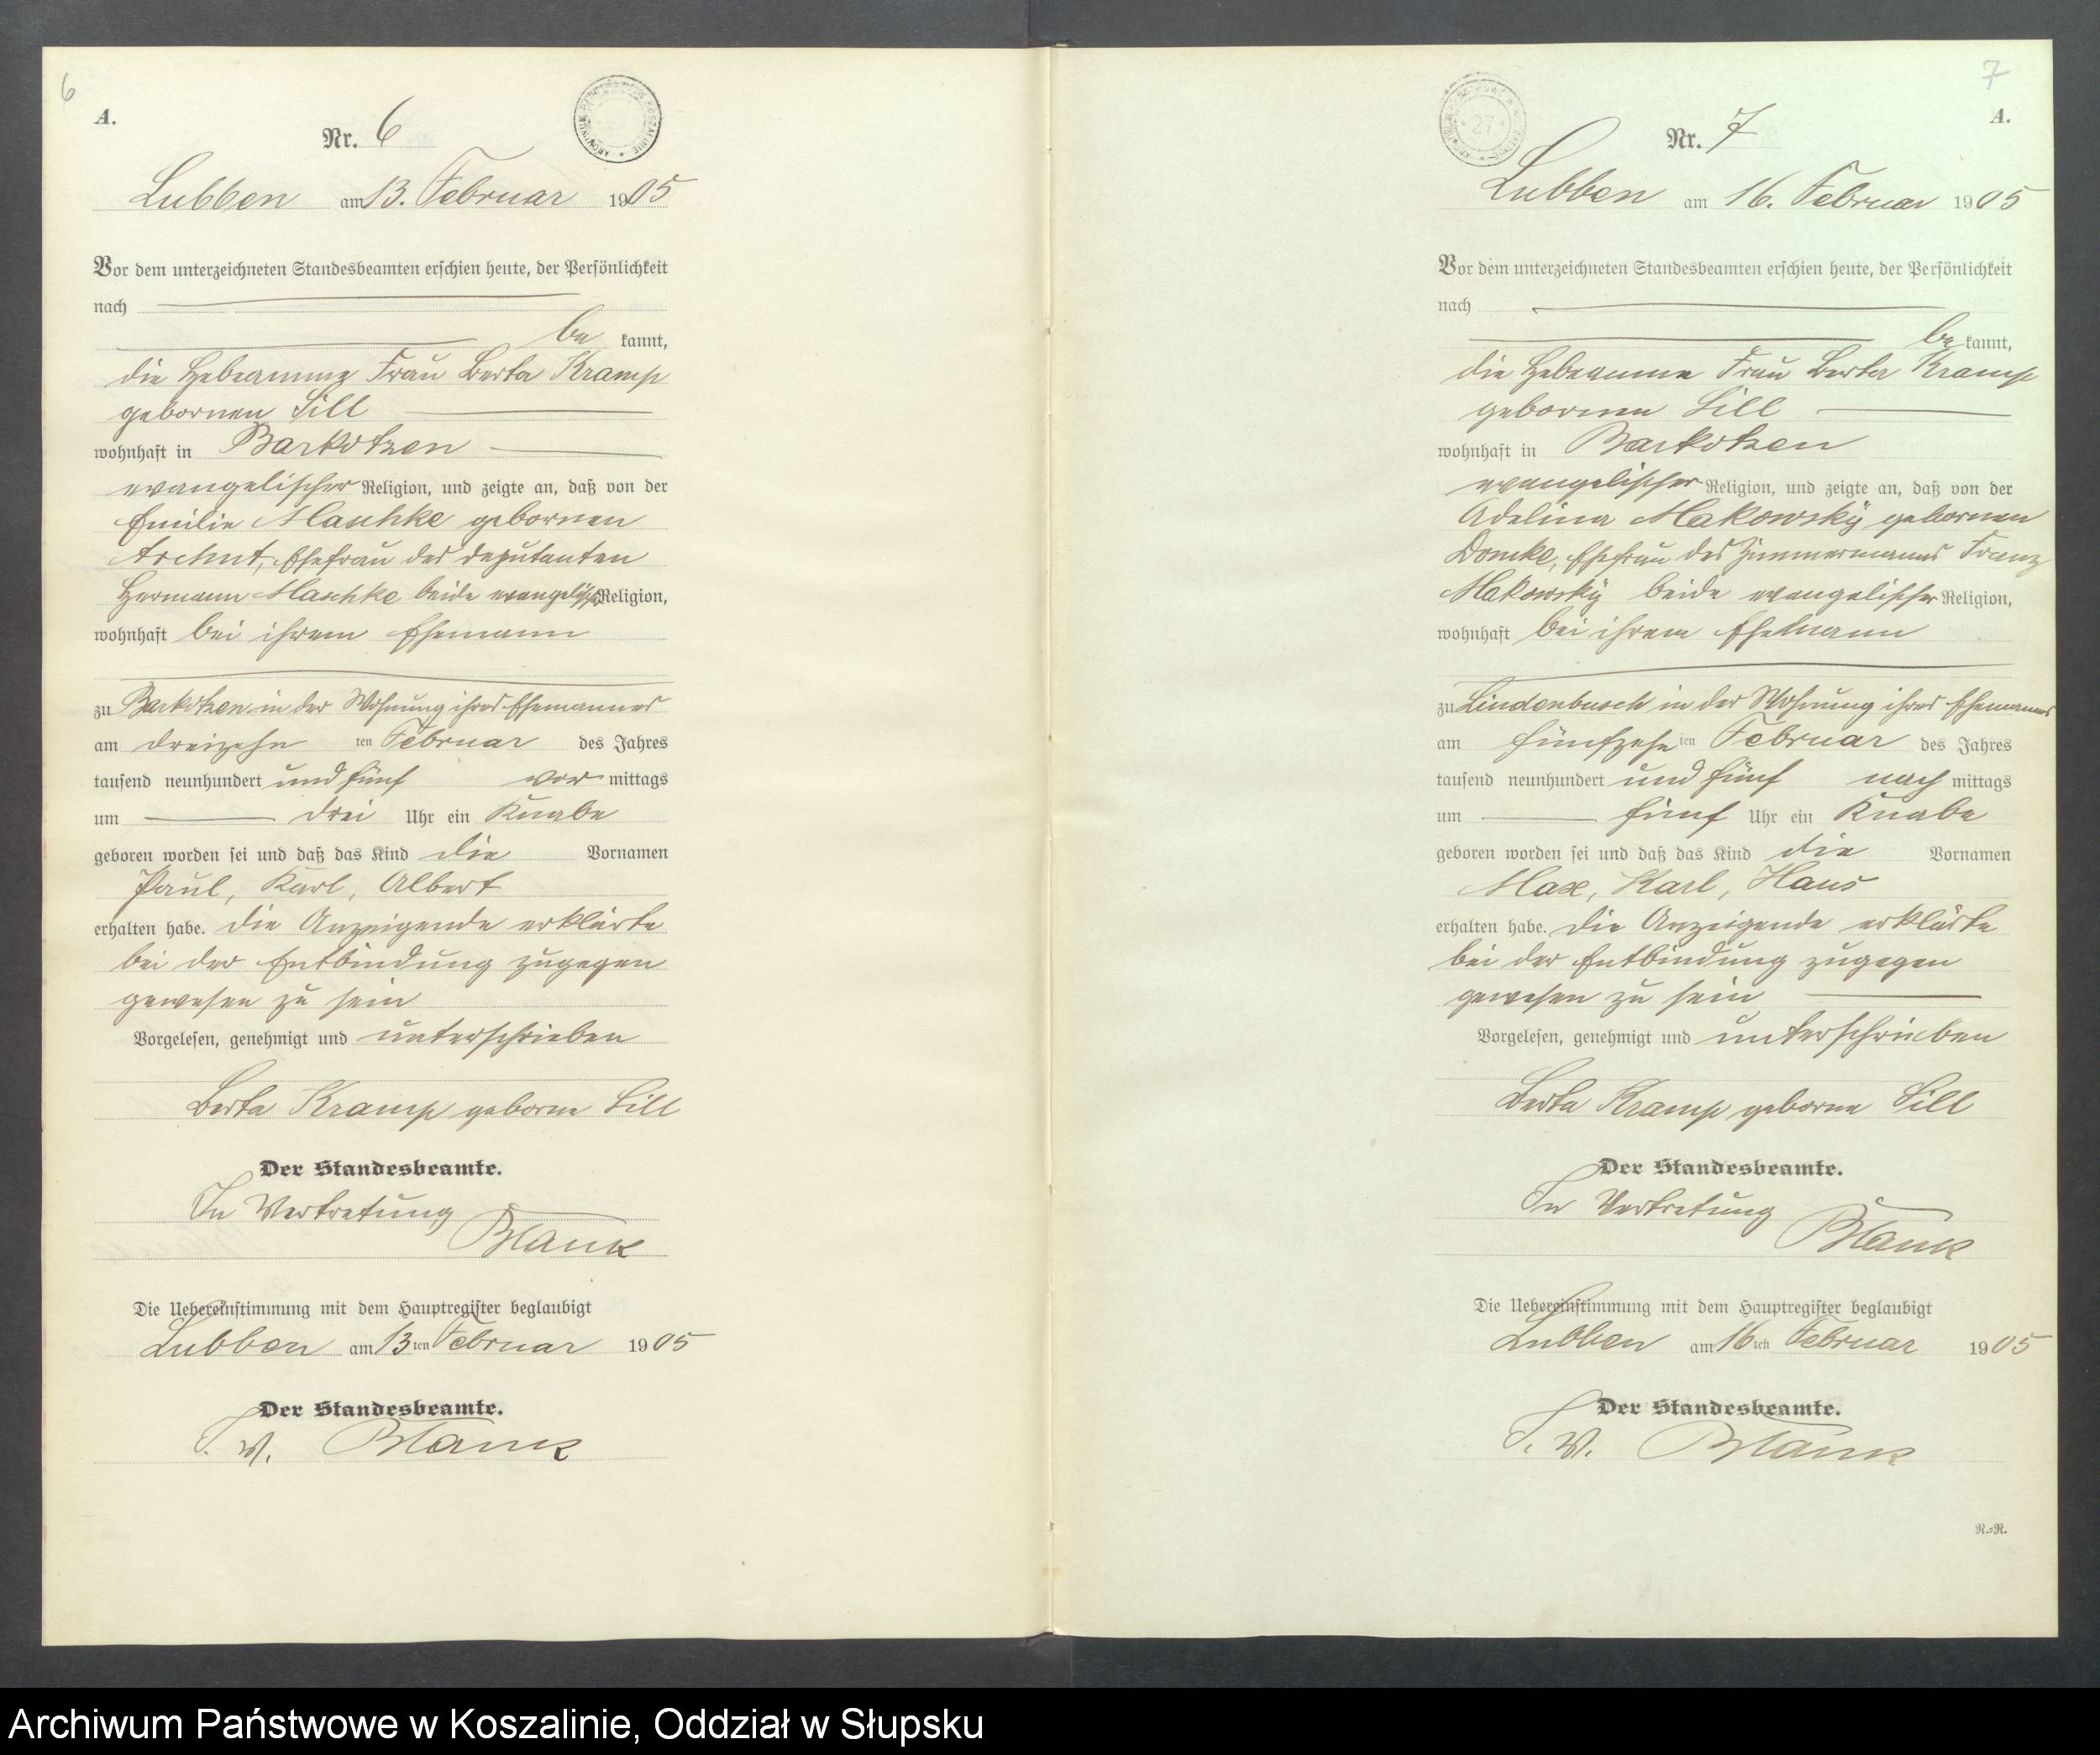 6
A.
Nr. 6
Lubben am 13. Februar 1905
Vor dem unterzeichneten Standesbeamten erschien heute, der Persönlichkeit
nach
be kannt,
die Hebeamme Frau Berta Kramp
gebornen Sill
wohnhaft in Barkotzen
evangelischer Religion, und zeigte an, daß von der
Emilie Maschke gebornen
Ehefrau des Deputanten
Hermann Maschke beide evangelischer Religion,
wohnhaft bei ihrem Ehemann
zu Barkotzen in der Wohnung ihres Ehemannes
am dreizehn ten Februar des Jahres
tausend neunhundert und fünf vor mittags
um drei Uhr ein Knabe
geboren worden sei und daß das Kind die Vornamen
Paul, Karl, Albert
erhalten habe. Die Anzeigende erklärte
bei der Entbindung zugegen
gewesen zu sein
Vorgelesen, genehmigt und unterschrieben
Berta Kramp geborne Sill
Der Standesbeamte.
In Vertretung
Blank
Die Uebereinstimmung mit dem Hauptregister beglaubigt
Lubben am 13 ten Februar 1905
Der Standesbeamte.
I. V. Blank
7
A.
27
Nr. 7
Lubben am 16. Februar 1905
Vor dem unterzeichneten Standesbeamten erschien heute, der Persönlichkeit
nach
be kannt,
die Hebeamme Frau Berta Kramp
gebornen Sill
wohnhaft in Barkotzen
evangelischer Religion, und zeigte an, daß von der
Adeline Makowsky gebornen
Domke, Ehefrau des Zimmermanns Franz
Makowsky beide evangelischer Religion,
wohnhaft bei ihrem Ehemann
zu Lindenbusch in der Wohnung ihres Ehemannes
am fünfzehn ten Februar des Jahres
tausend neunhundert und fünf nach mittags
um fünf Uhr ein Knabe
geboren worden sei und daß das Kind die Vornamen
Max, Karl, Hans
erhalten habe. Die Anzeigende erklärte
bei der Entbindung zugegen
gewesen zu sein
Vorgelesen, genehmigt und unterschrieben
Berta Kramp geborne Sill
Der Standesbeamte.
In Vertretung
Blank
Die Uebereinstimmung mit dem Hauptregister beglaubigt
Lubben am 16 ten Februar 1905
Der Standesbeamte.
I. V. Blank
R.-R.
Archiwum Państwowe w Koszalinie, Oddział w Słupsku